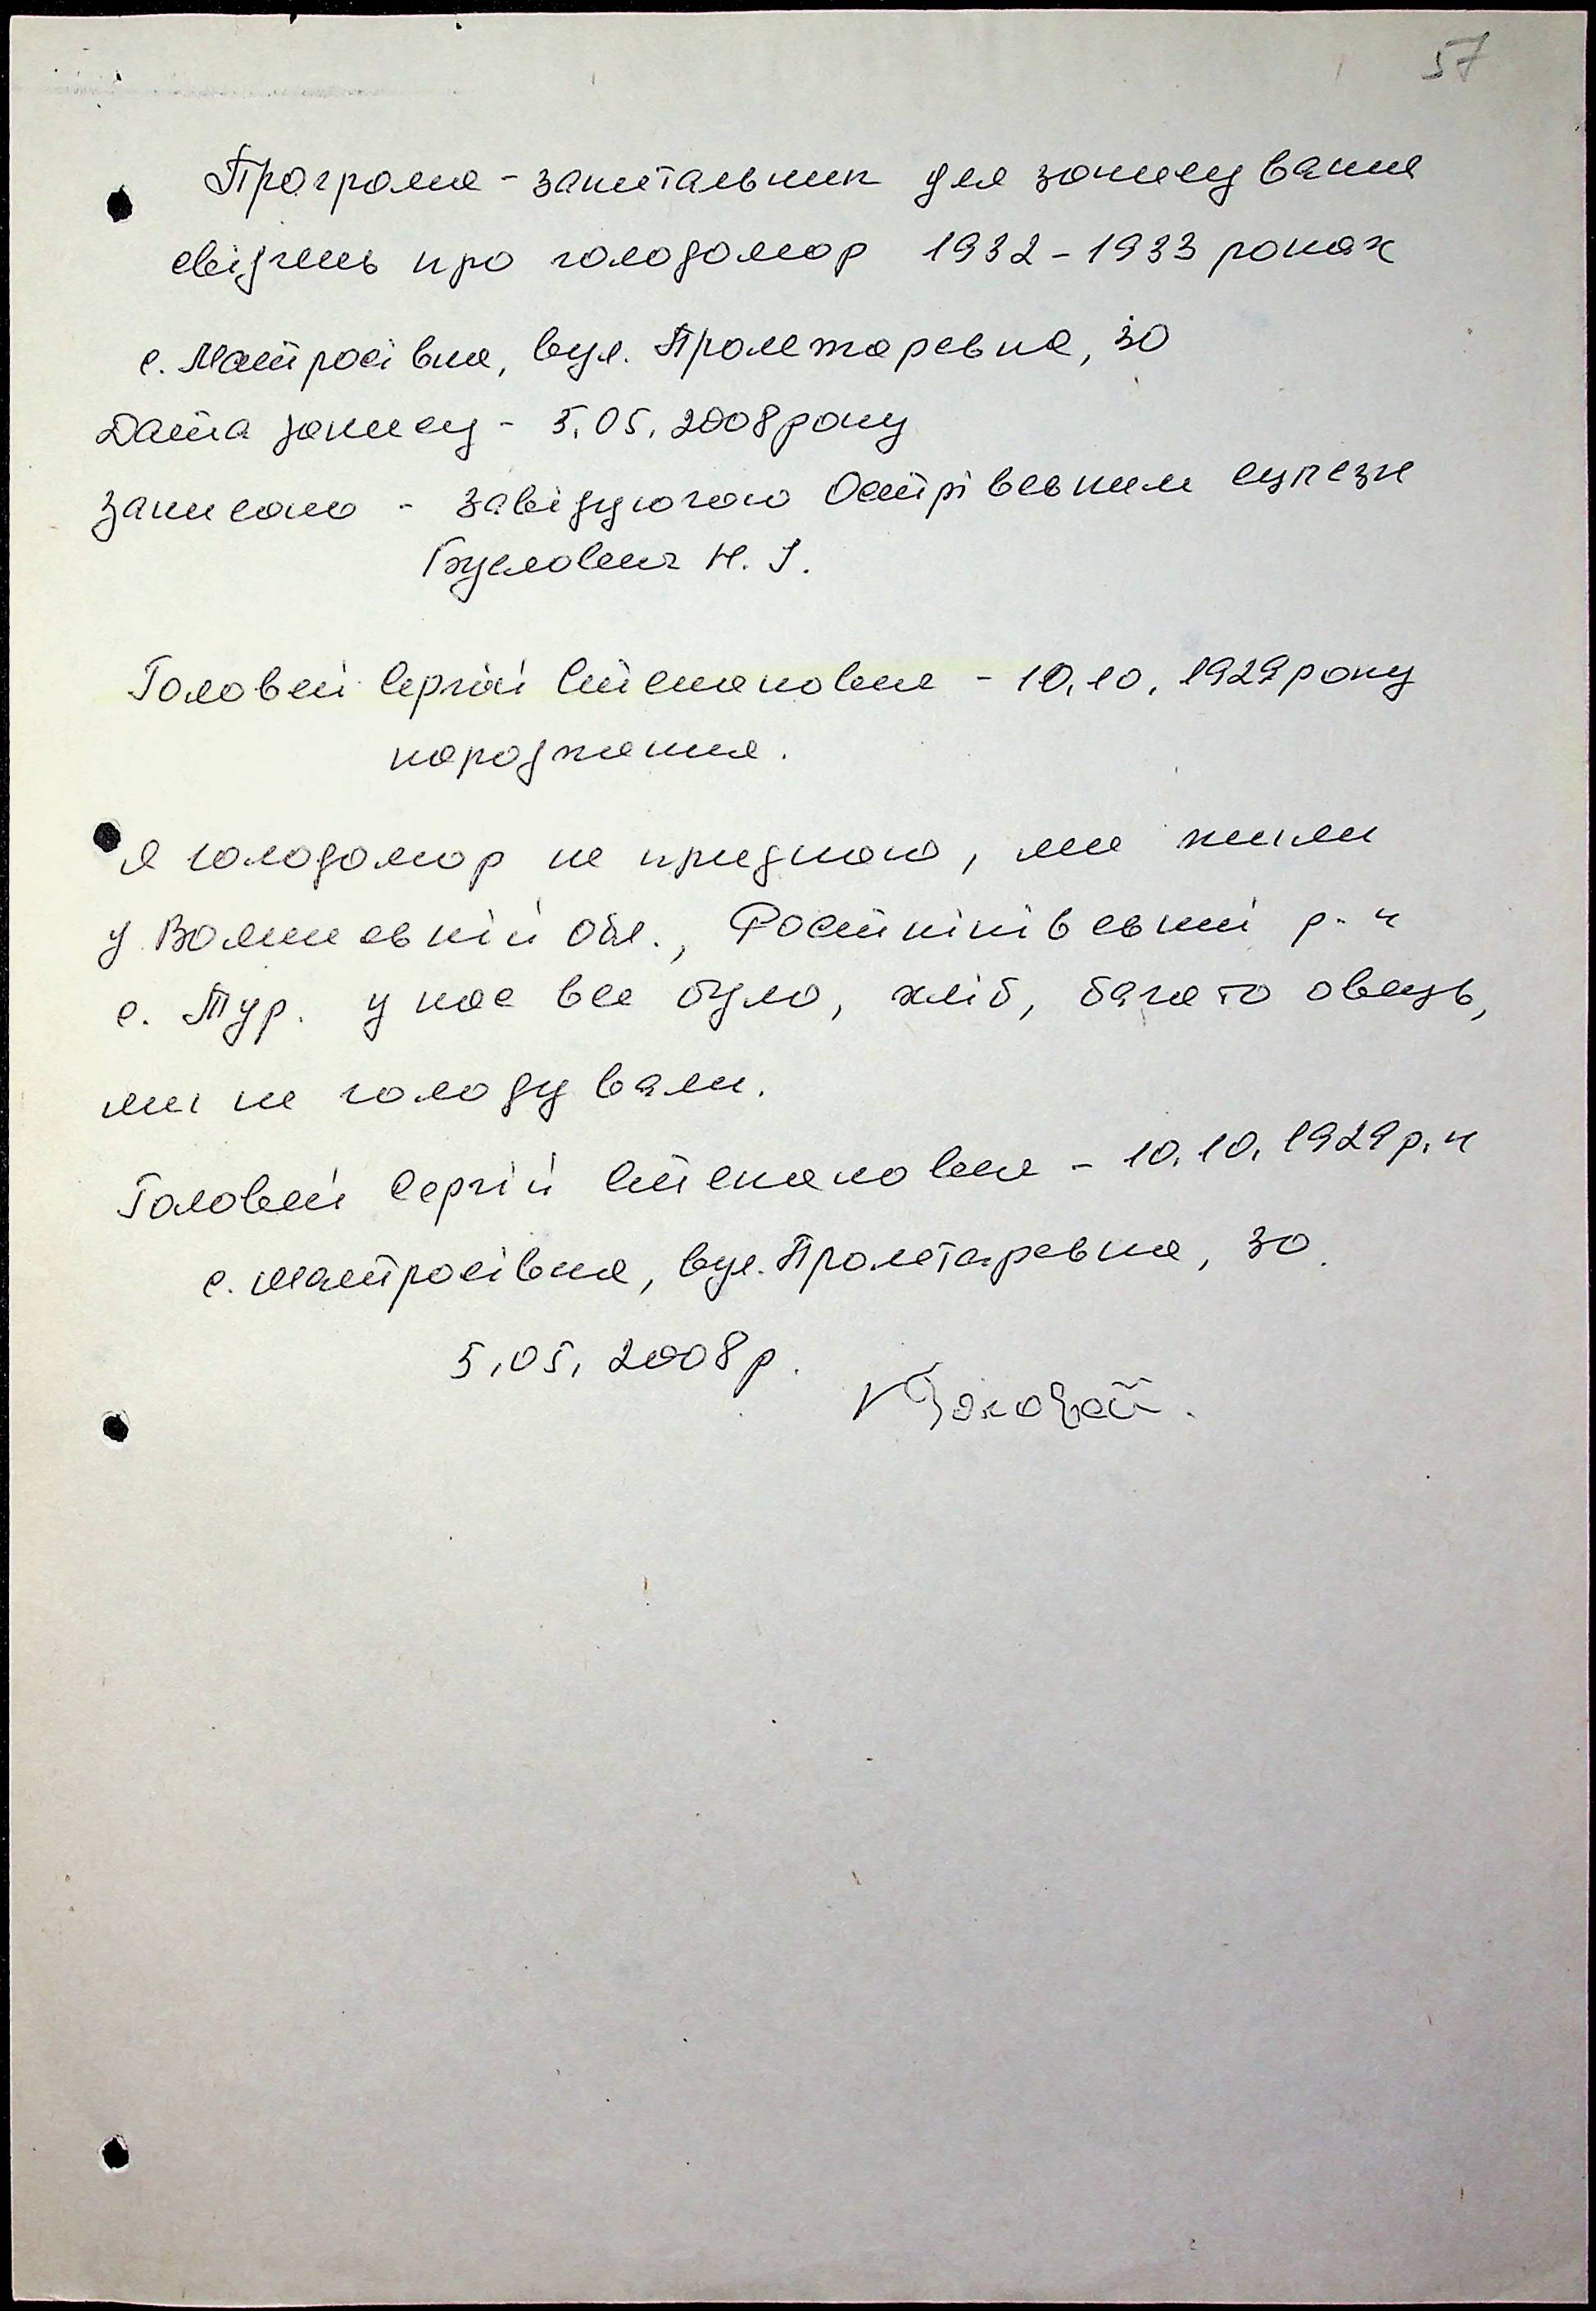 57
Програма - запитальник для записування
свідчень про голодомор 1932 - 1933 роках
с. Матросівка, вул. Пролетарська, 30
Дата запису - 5.05.2008 року
Записано - завідуючою Острівським
Буслович Н. І.
Головей Сергій Степанович - 10.10.1929 року
народження.
Я голодомор не придпаю, ми жили
у Волинській обл., Ростніківський р-н
с. Тур. у нас все було, хліб, багато овець,
ми не голодували.
Головей Сергій Степанович - 10.10.1929 р.н
с. Матросівка, вул. Пролетарська, 30.
5.05.2008 р.
Головей.